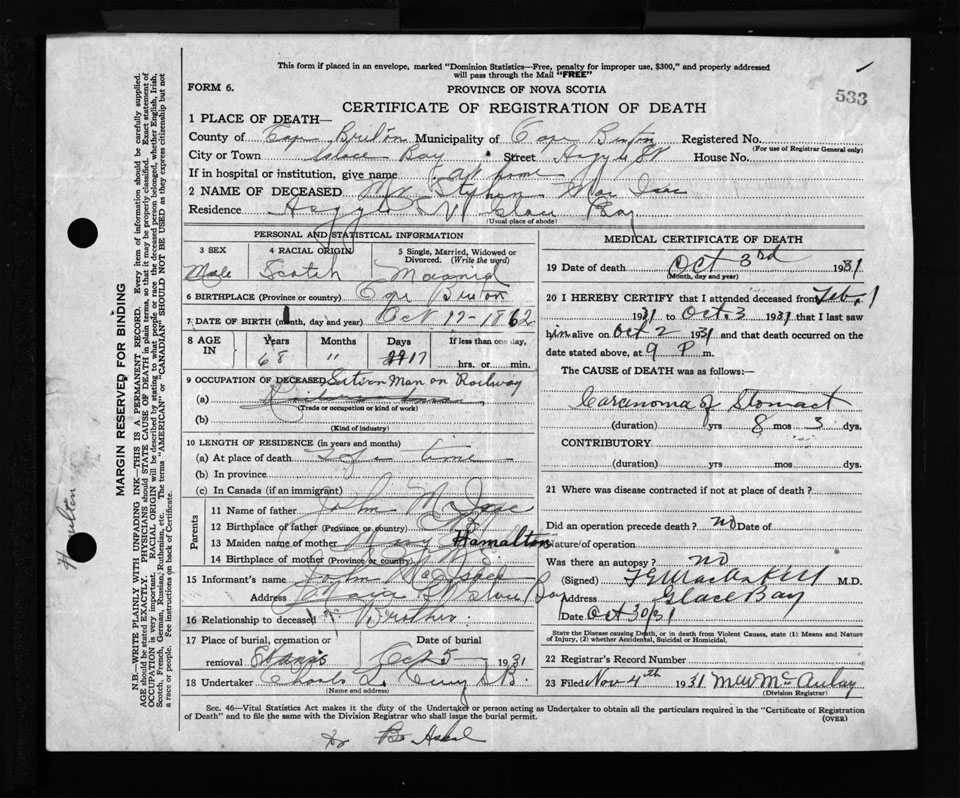 This form if placed in an envelope, marked "Dominion Statistics—Free, penalty for improper use, $300," and properly addressed
will pass through the Mail "FREE"
533
FORM 6.
PROVINCE OF NOVA SCOTIA
CERTIFICATE OF REGISTRATION OF DEATH
1 PLACE OF DEATH—
County of Cape Breton Municipality of Cape Breton Registered No.
(For use of Registrar General only)
City or Town Glace Bay Street Argyle St House No.
If in hospital or institution, give name at home
2 NAME OF DECEASED Mr. Stephen Mac Isac
Residence Argyle St Glace Bay
(Usual place of abode)
PERSONAL AND STATISTICAL INFORMATION
3 SEX
Male
4 RACIAL ORIGIN
Scotch
5 Single, Married, Widowed or
Divorced. (Write the word)
Married
6 BIRTHPLACE (Province or country) Cape Breton
7 DATE OF BIRTH (month, day and year) Oct 17-1862
8 AGE IN
Years
68
Months
"
Days
17
If less than one day,
hrs. or min.
9 OCCUPATION OF DECEASED Section Man on Railway
(a)
(Trade or occupation or kind of work)
(b)
(Kind of industry)
10 LENGTH OF RESIDENCE (in years and months)
(a) At place of death Life time
(b) In province
(c) In Canada (if an immigrant)
Parents
11 Name of father John McIsac
12 Birthplace of father (Province or country)
13 Maiden name of mother Mary Hamalton
14 Birthplace of mother (Province or country)
15 Informant's name John McIsaac
Address Glace Bay
16 Relationship to deceased Brother.
17 Place of burial, cremation or
removal
Date of burial
Oct 5 1931
18 Undertaker Charles L. Curry G B.
(Name and address)
MEDICAL CERTIFICATE OF DEATH
19 Date of death Oct 3rd 1931
(Month, day and year)
20 I HEREBY CERTIFY that I attended deceased from Feb. 1
1931 to Oct. 3 1931 that I last saw
him alive on Oct 2 1931 and that death occurred on the
date stated above, at 9 P m.
The CAUSE of DEATH was as follows:—
Carcinoma of Stomach
(duration) yrs 8 mos 3 dys.
CONTRIBUTORY
(duration) yrs mos dys.
21 Where was disease contracted if not at place of death?
Did an operation precede death? no Date of
Nature of operation
Was there an autopsy? no
(Signed) M.D.
Address Glace Bay
Date Oct 30/31
State the Disease causing Death, or in death from Violent Causes, state (1) Means and Nature
of Injury, (2) whether Accidental, Suicidal or Homicidal.
22 Registrar's Record Number
23 Filed Nov 4th 1931 McAulay
(Division Registrar)
Sec. 46—Vital Statistics Act makes it the duty of the Undertaker or person acting as Undertaker to obtain all the particulars required in the "Certificate of Registration
of Death" and to file the same with the Division Registrar who shall issue the burial permit.
(OVER)
MARGIN RESERVED FOR BINDING
N.B.—WRITE PLAINLY WITH UNFADING INK—THIS IS A PERMANENT RECORD. Every item of information should be carefully supplied.
AGE should be stated EXACTLY. PHYSICIANS should STATE CAUSE OF DEATH in plain terms, so that it may be properly classified. Exact statement of
OCCUPATION is very important. RACIAL ORIGIN will be described by stating to what people or race the deceased person belonged, whether English, Irish,
Scotch, French, German, Russian, Ruthenian, etc. The terms "AMERICAN" or "CANADIAN" SHOULD NOT BE USED as they express citizenship but not
a race or people. See instructions on back of Certificate.